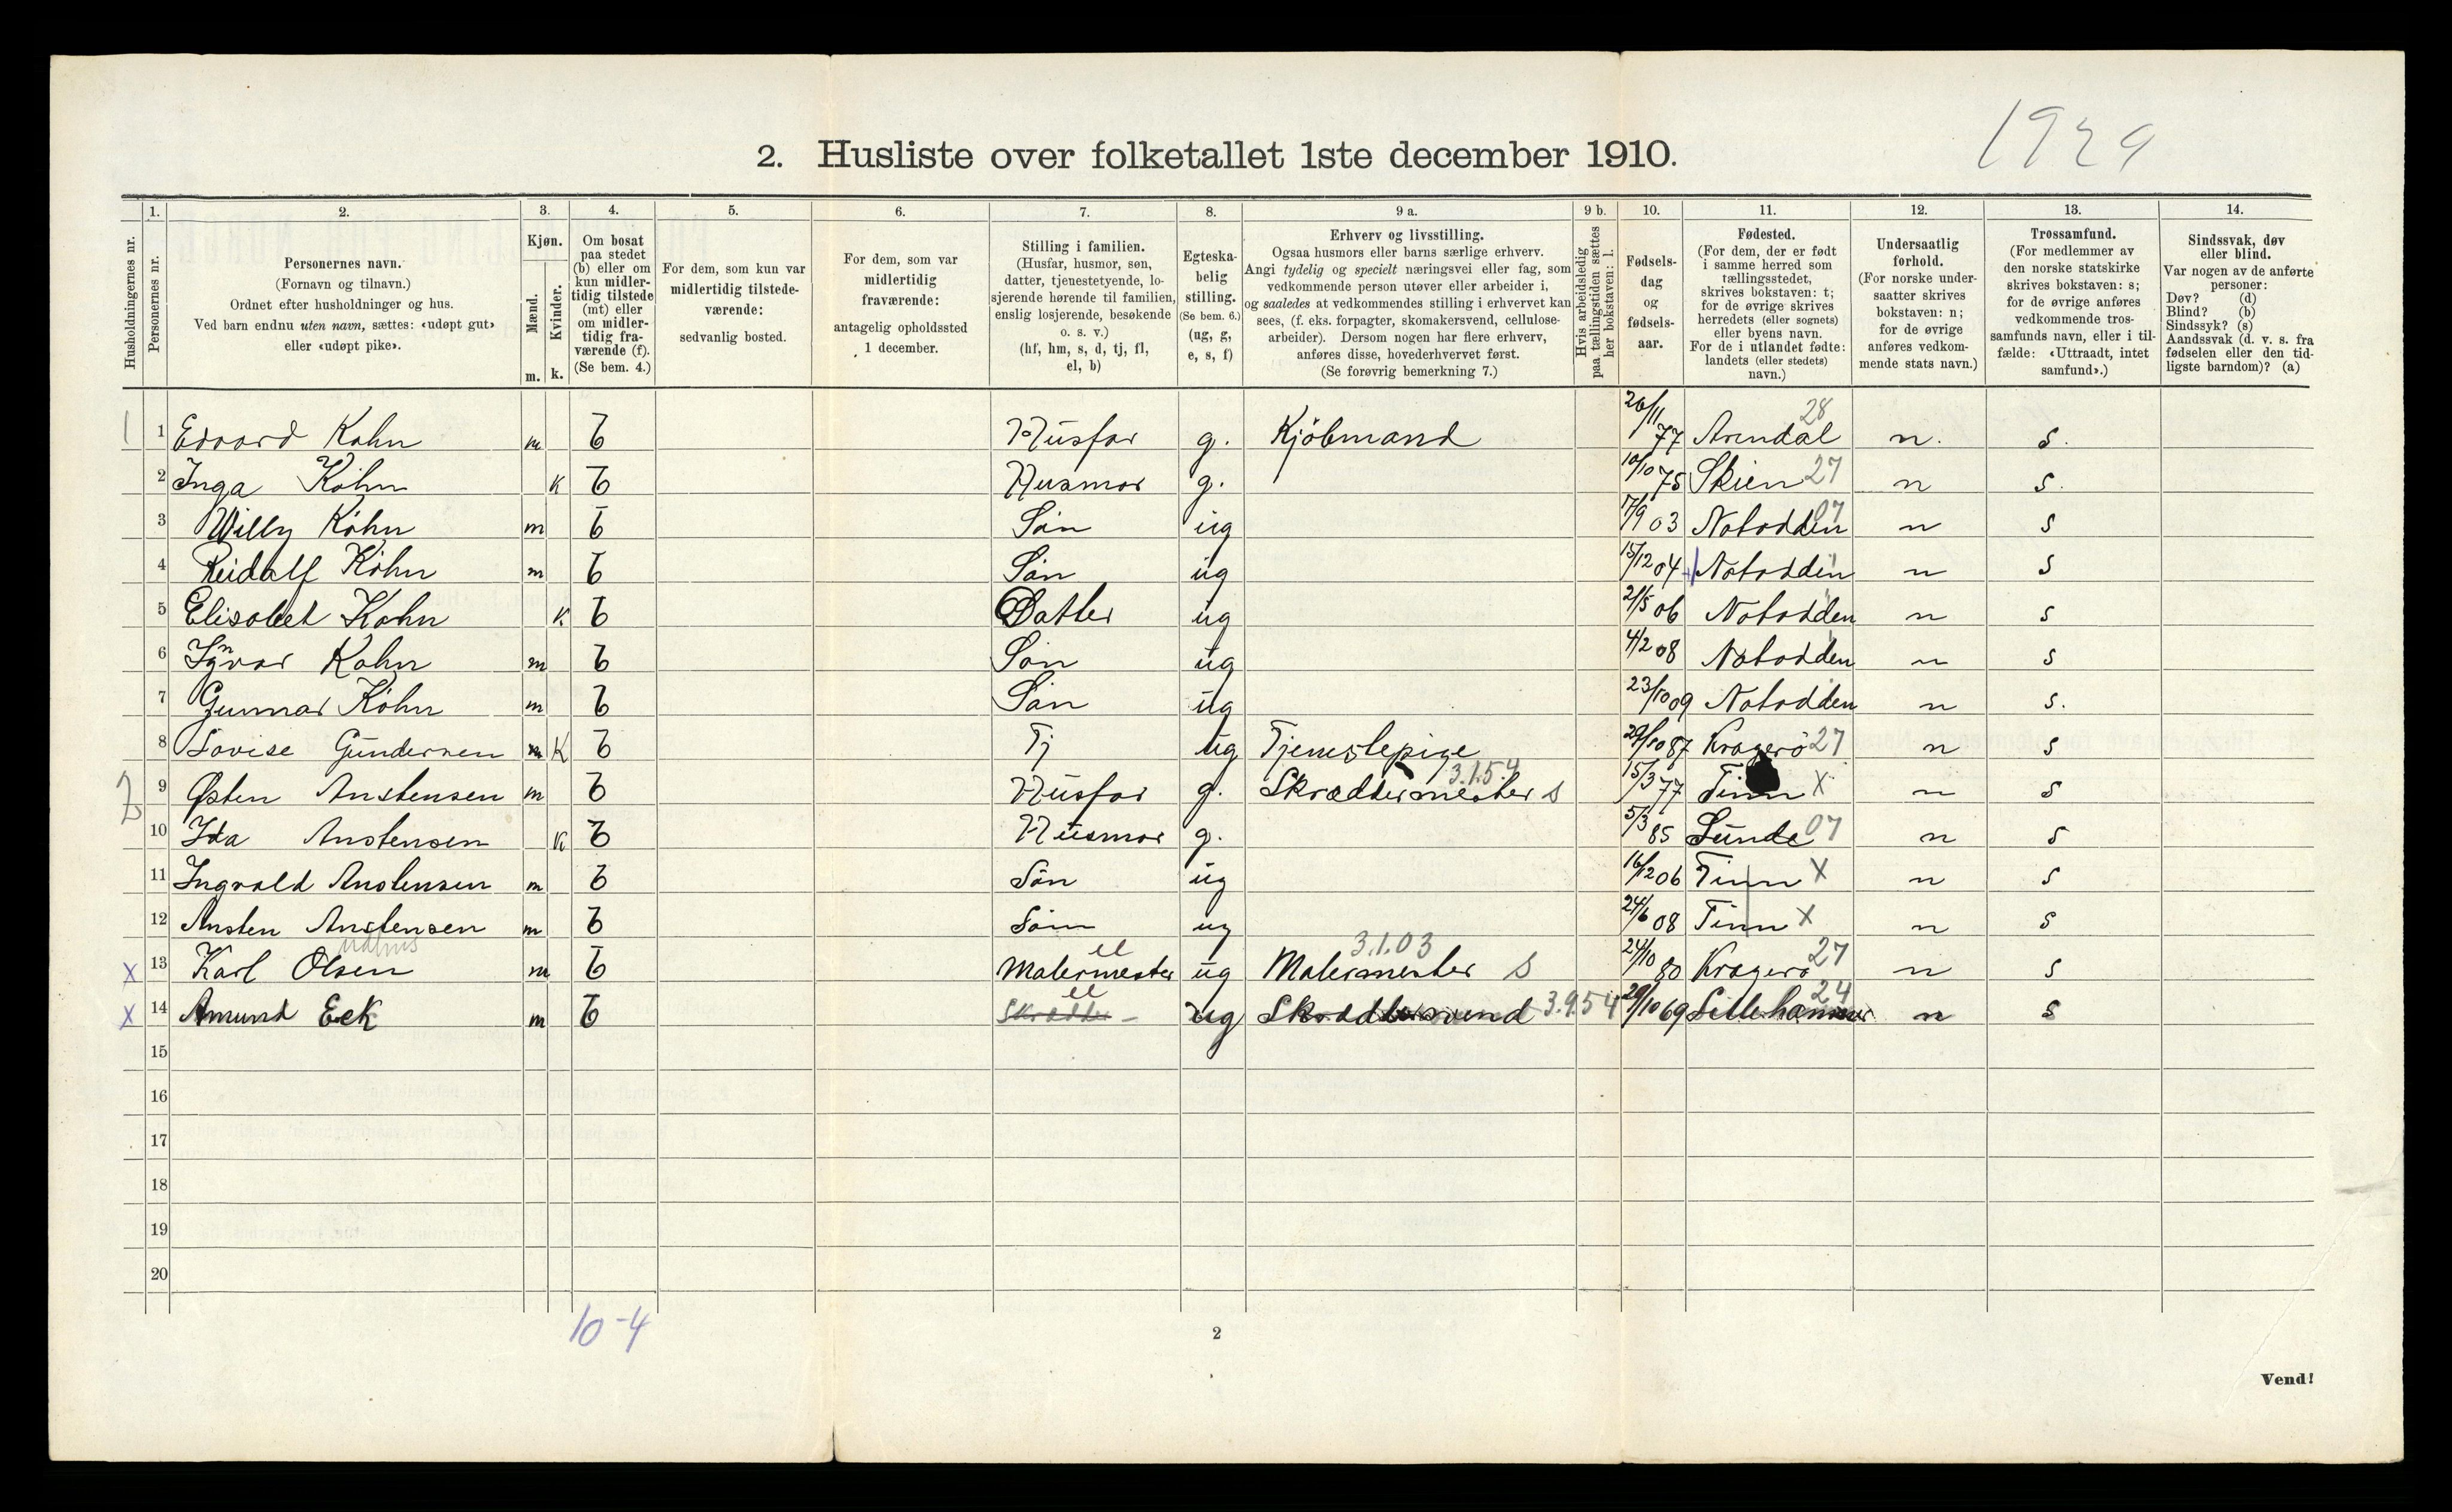 1929
2. Husliste over folketallet 1ste december 1910.
Husholdningernes nr.
1. Personernes nr.
2. Personernes navn. (Fornavn og tilnavn.) Ordnet efter husholdninger og hus. Ved barn endnu uten navn, sættes: «udøpt gut» eller «udøpt pike».
3. Kjøn. Mænd. m. Kvinder. k.
4. Om bosat paa stedet (b) eller om kun midlertidig tilstede (mt) eller om midlertidig fraværende (f). (Se bem. 4.)
5. For dem, som kun var midlertidig tilstedeværende: sedvanlig bosted.
6. For dem, som var midlertidig fraværende: antagelig opholdssted 1 december.
7. Stilling i familien. (Husfar, husmor, søn, datter, tjenestetyende, losjerende hørende til familien, enslig losjerende, besøkende o. s. v.) (hf, hm, s, d, tj, fl, el, b)
8. Egteskabelig stilling. (Se bem. 6.) (ug, g, e, s, f)
9 a. Erhverv og livsstilling. Ogsaa husmors eller barns særlige erhverv. Angi tydelig og specielt næringsvei eller fag, som vedkommende person utøver eller arbeider i, og saaledes at vedkommendes stilling i erhvervet kan sees, (f. eks. forpagter, skomakersvend, cellulosearbeider). Dersom nogen har flere erhverv, anføres disse, hovederhvervet først. (Se forøvrig bemerkning 7.)
9 b. Hvis arbeidsledig paa tællingstiden sættes her bokstaven: l.
10. Fødselsdag og fødselsaar.
11. Fødested. (For dem, der er født i samme herred som tællingsstedet, skrives bokstaven: t; for de øvrige skrives herredets (eller sognets) eller byens navn. For de i utlandet fødte: landets (eller stedets) navn.)
12. Undersaatlig forhold. (For norske undersaatter skrives bokstaven: n; for de øvrige anføres vedkommende stats navn.)
13. Trossamfund. (For medlemmer av den norske statskirke skrives bokstaven: s; for de øvrige anføres vedkommende trossamfunds navn, eller i tilfælde: «Uttraadt, intet samfund».)
14. Sindssvak, døv eller blind. Var nogen av de anførte personer: Døv? (d) Blind? (b) Sindssyk? (s) Aandssvak (d. v. s. fra fødselen eller den tidligste barndom)? (a)
1 1 Edvard Køhn m b Husfar g. Kjøbmand 26/11 77 Arendal 28 n. s.
2 Inga Køhn k b Husmor g. 10/10 75 Skien 27 n s.
3 Willy Køhn m b Søn ug 17/9 03 Notodden 07 n s
4 Reidalf Køhn m b Søn ug 15/12 04 Notodden n s
5 Elisabet Køhn k b Datter ug 21/5 06 Notodden n s
6 Yngvar Køhn m b Søn ug 4/2 08 Notodden n s
7 Gunnar Køhn m b Søn ug 23/10 09 Notodden n s.
8 Lovise Gundersen m K b Tj ug Tjenestepige 29/10 87 Kragerø 27 n s
2 9 Østen Anstensen m b Husfar g. Skræddermester s 3.1.54 15/3 77 Tinn X n s
10 Ida Anstensen k b Husmor g. 5/3 85 Lunde 07 n s
11 Ingvald Anstensen m b Søn ug 16/12 06 Tinn X n s
12 Ansten Anstensen m b Søn ug 24/6 08 Tinn X n s
X 13 Karl Olsen m b Malermester el ug Malermester s 3.1.03 24/10 80 Kragerø 27 n s
X 14 Amund Eek m b Skrædder - el ug Skræddersvend 3.9.54 29/10 69 Lillehammer 24 n s
15
16
17
18
19
20
10-4
2
Vend!